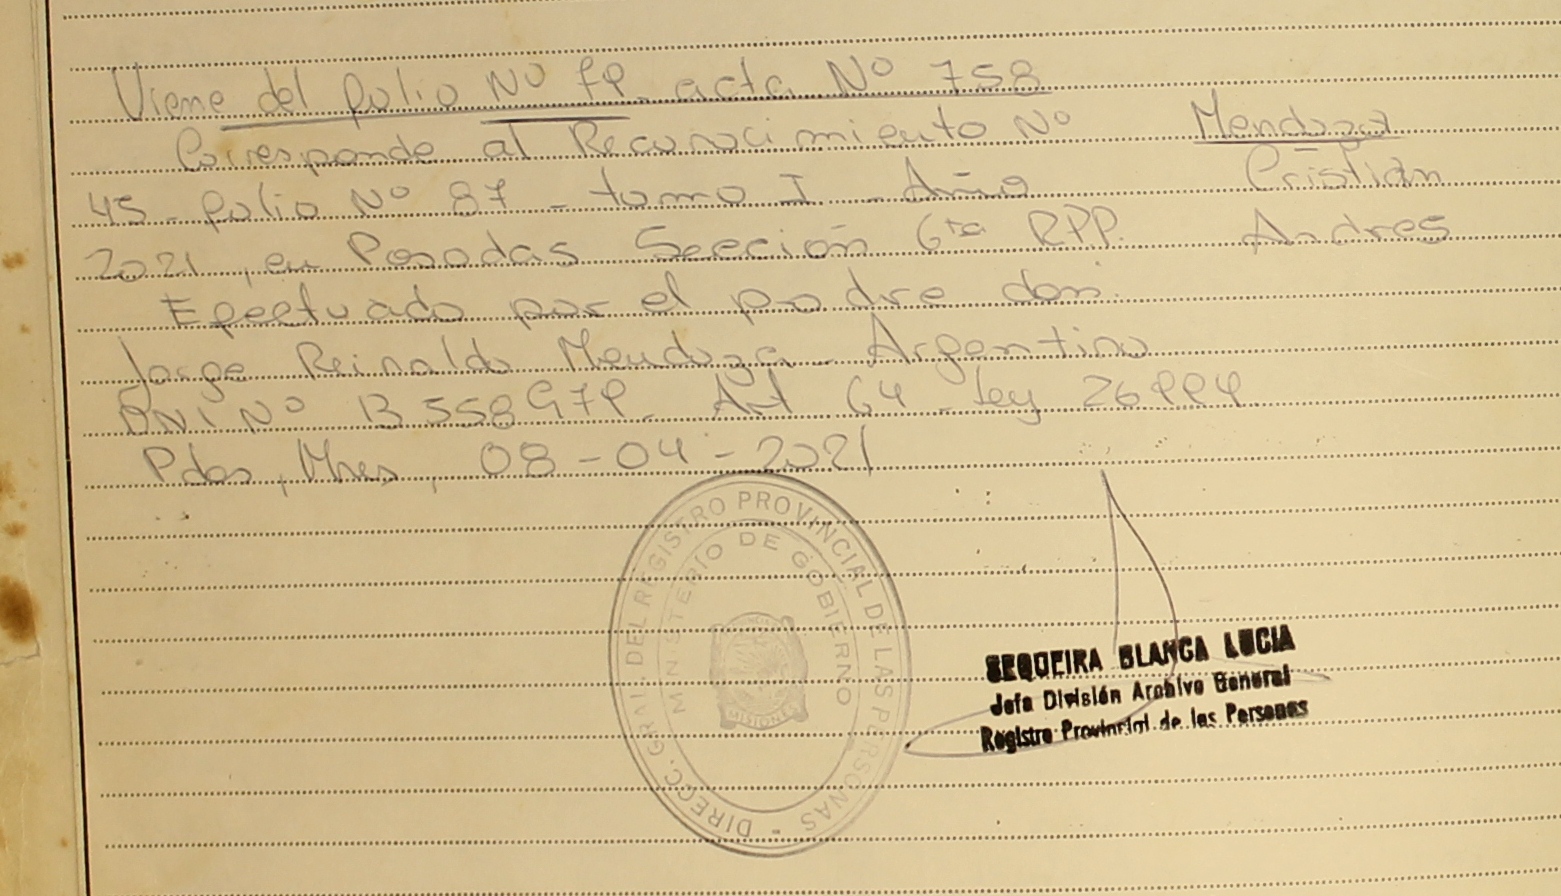 Viene del folio Nº 99. acta Nº 758
Corresponde al Reconocimiento Nº
45 - folio Nº 87 - tomo I - Año
2021, en Posadas Sección 6ta RPP.
Efectuado por el padre don:
Jorge Reinaldo Mendoza - Argentino
DNI Nº 13558979. Art 64 - Ley 26994
Pdas, Mnes, 08-04-2021
Mendoza
Cristian
Andres
DIRECC. GRAL. DEL REGISTRO PROVINCIAL DE LAS PERSONAS -
MINISTERIO DE GOBIERNO
MISIONES
SEQUEIRA BLANCA LUCIA
Jefa División Archivo General
Registro Provincial de las Personas